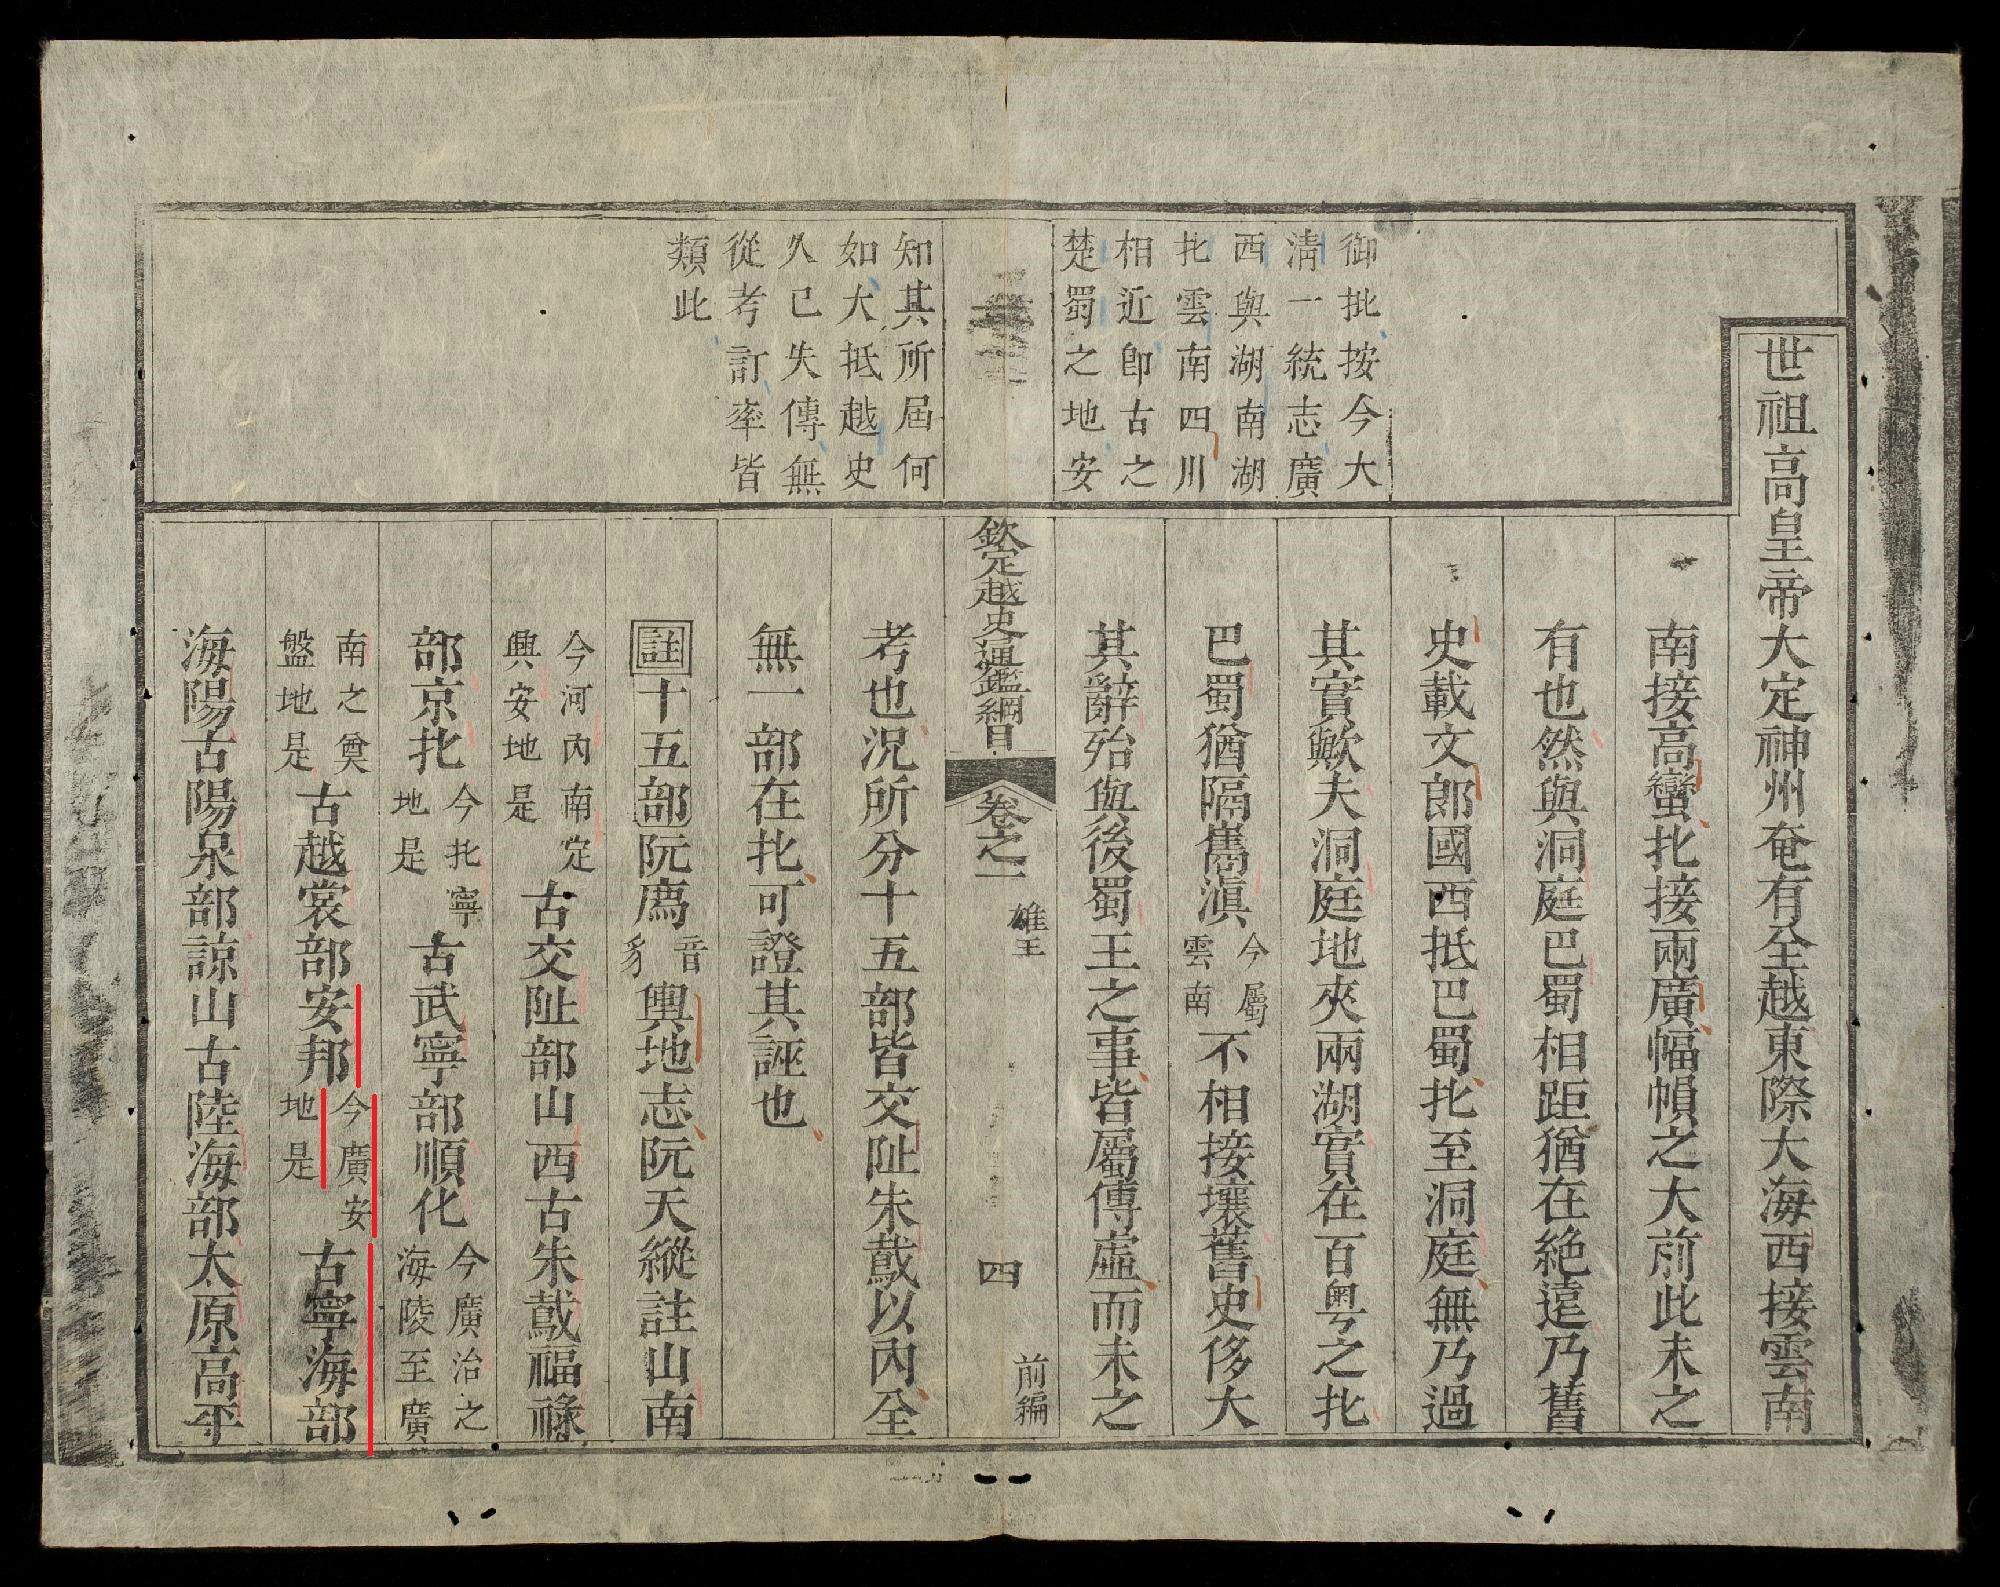 御批按今大
淸一統志廣
西與湖南湖
北雲南四川
相近卽古之
楚蜀之地安
知其所屆何
如大抵越史
久已失傳無
從考訂率皆
類此
世祖高皇帝大定神州奄有全越東際大海西接雲南
南接高蠻北接兩廣幅幀之大前此未之
有也然與洞庭巴蜀相距猶在絶遠乃舊
史載文郞國西抵巴蜀北至洞庭無乃過
其實歟夫洞庭地夾兩湖實在百粤之北
巴蜀猶隔雟滇今屬雲南不相接壤舊史侈大
其辭殆與後蜀王之事皆屬傳虛而未之
欽定越史通鑑綱目 卷之一 雄王 四 前編
考也況所分十五部皆交趾朱䳒以內全
無一部在北可證其誣也
註十五部阮廌音豸輿地志阮天縱註山南
今河內南定興安地是古交趾部山西古朱䳒福祿
部京北今北寧地是古武寧部順化今廣治之海陵至廣
南之奠盤地是古越裳部安邦今廣安地是古寧海部
海陽古陽泉部諒山古陸海部太原高平